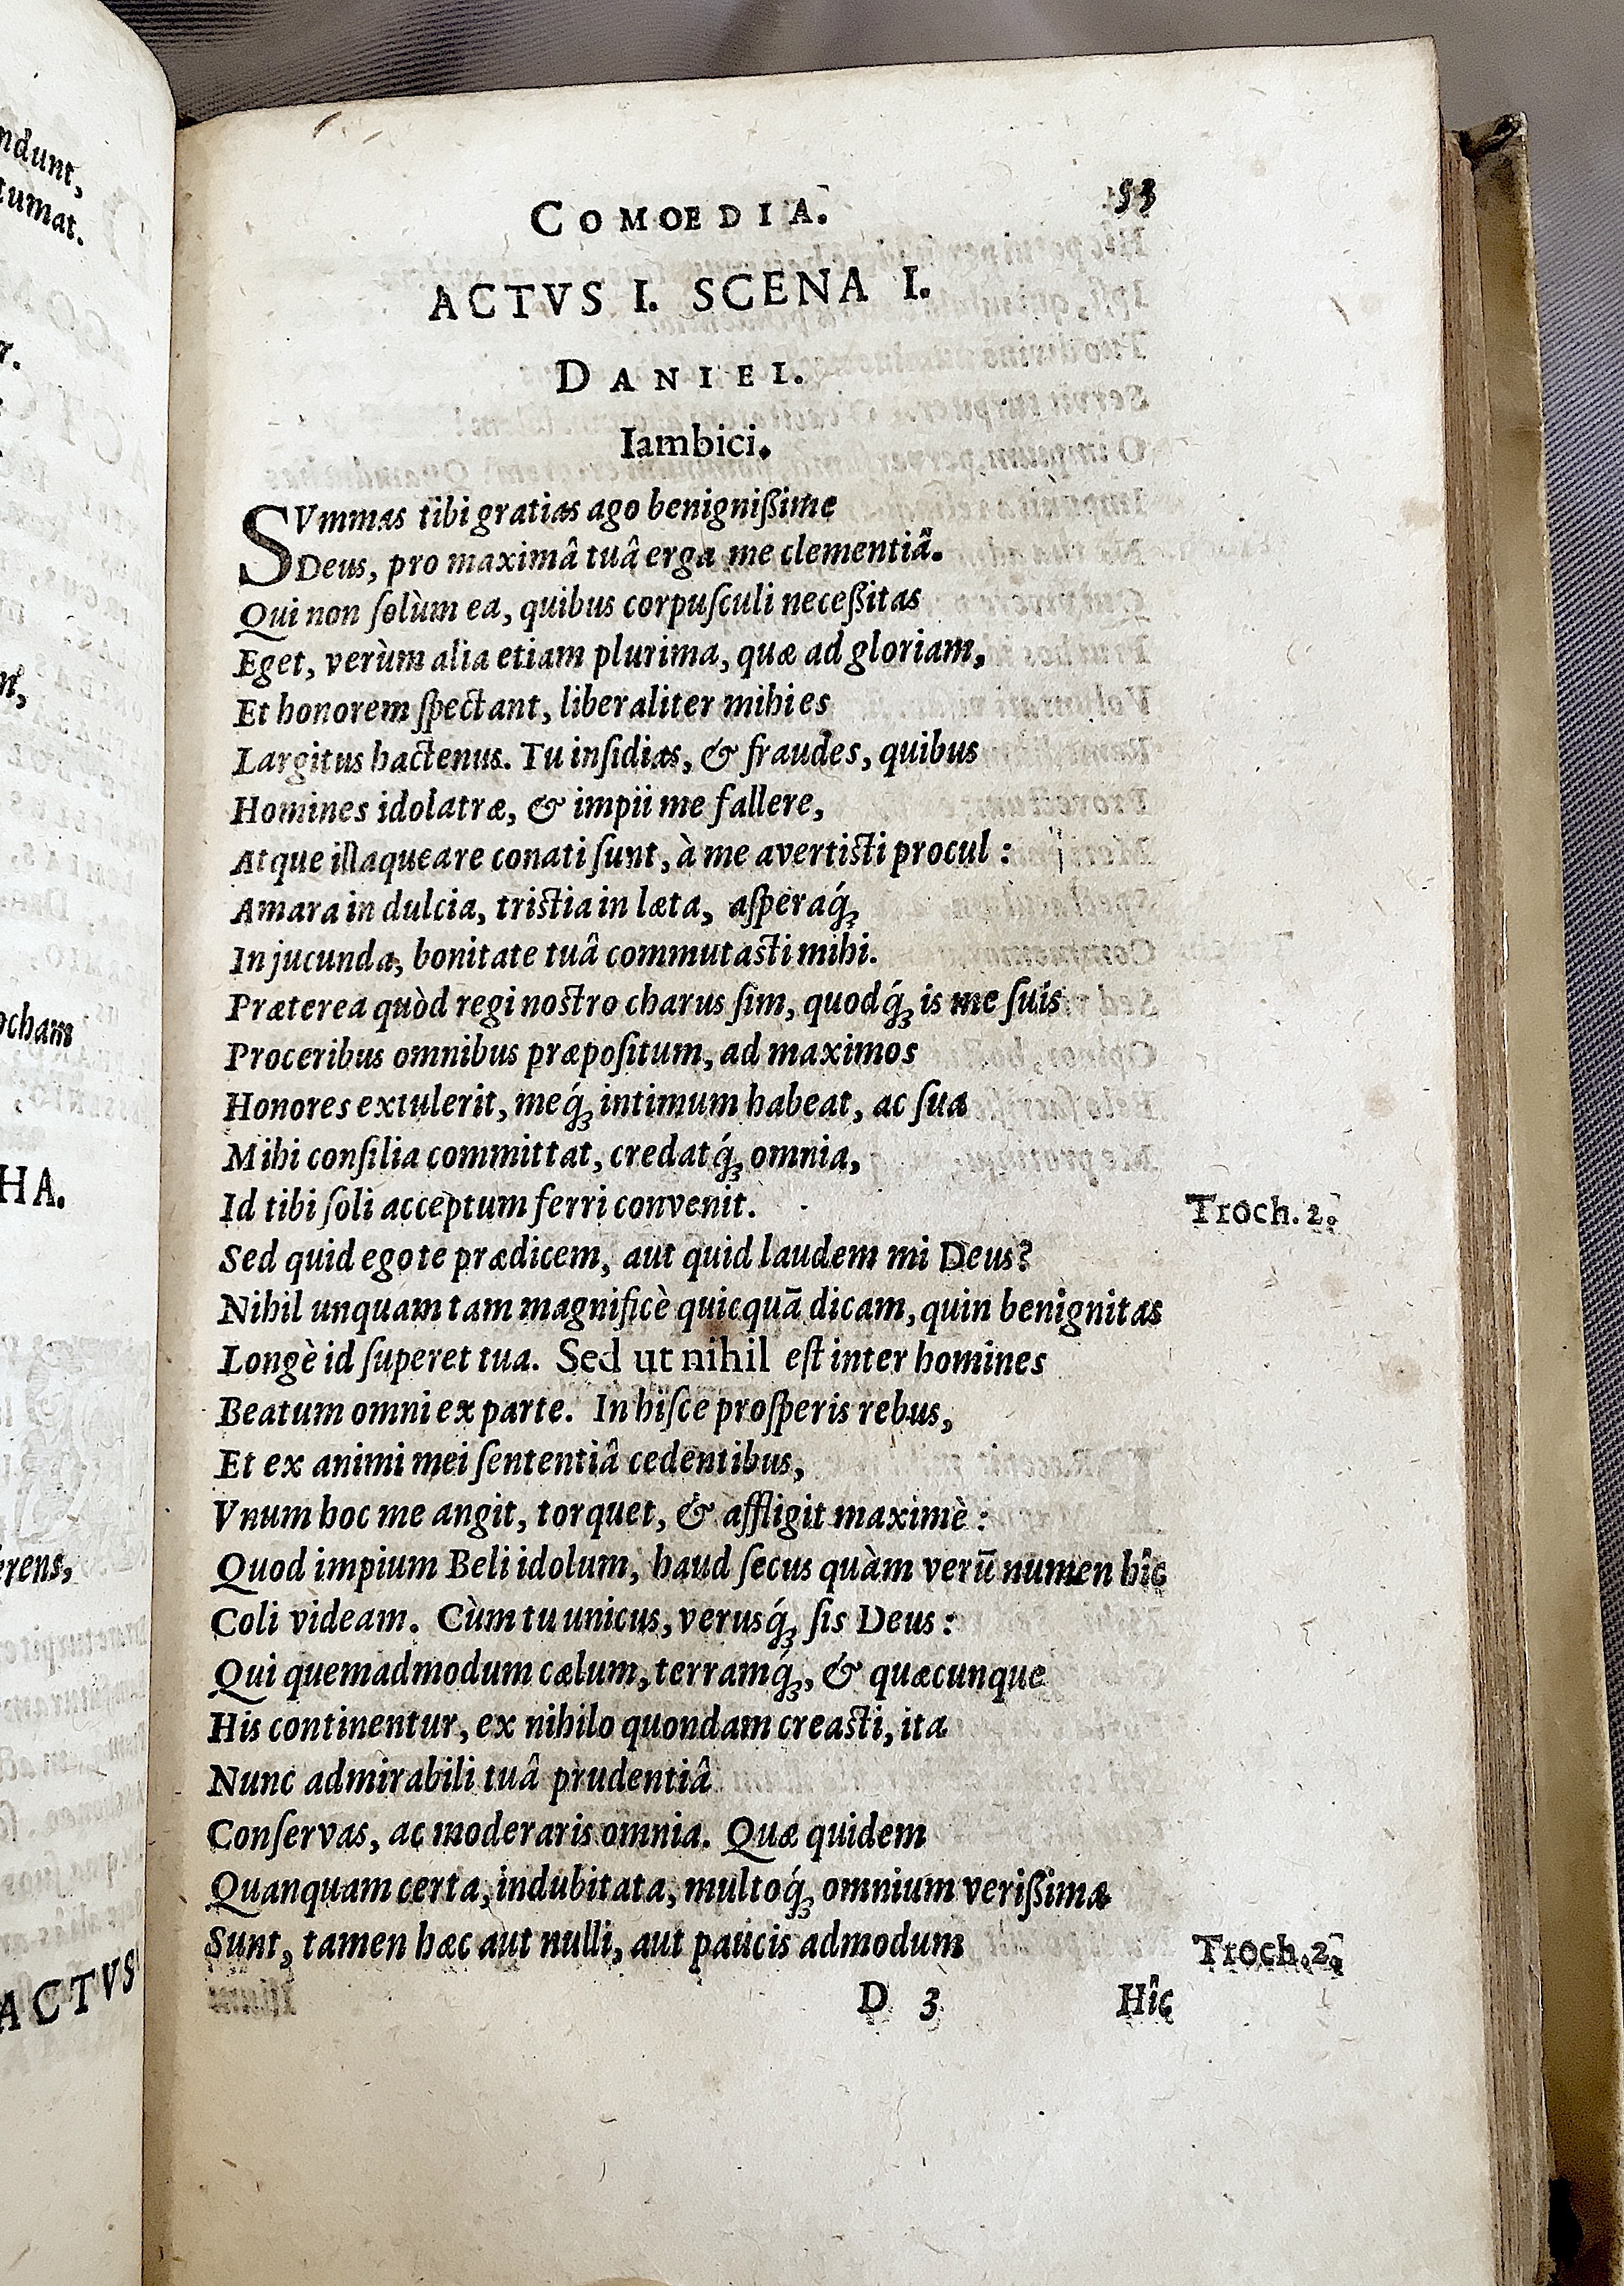 ndunt,
tumat.
n,
ocham
HA.
erens,
ACTVS
COMOEDIA. 53
ACTVS I. SCENA I.
DANIEL.
Iambici.
SVmmas tibi gratias ago benignißime
Deus, pro maximâ tuâ erga me clementiâ.
Qui non ſolùm ea, quibus corpuſculi neceßitas
Eget, verùm alia etiam plurima, quæ ad gloriam,
Et honorem ſpectant, liberaliter mihi es
Largitus hactenus. Tu inſidias, & fraudes, quibus
Homines idolatræ, & impii me fallere,
Atque illaqueare conati ſunt, à me avertisti procul :
Amara in dulcia, tristia in læta, aſperaq́ꝫ
In jucunda, bonitate tuâ commutasti mihi.
Præterea quòd regi nostro charus ſim, quodq́ꝫ is me ſuis
Proceribus omnibus præpoſitum, ad maximos
Honores extulerit, meq́ꝫ intimum habeat, ac ſua
Mihi conſilia committat, credatq́ꝫ omnia,
Id tibi ſoli acceptum ferri convenit. Troch. 2.
Sed quid ego te prædicem, aut quid laudem mi Deus?
Nihil unquam tam magnificè quicquā dicam, quin benignitas
Longè id ſuperet tua. Sed ut nihil eſt inter homines
Beatum omni ex parte. In hiſce proſperis rebus,
Et ex animi mei ſententiâ cedentibus,
Vnum hoc me angit, torquet, & affligit maximè :
Quod impium Beli idolum, haud ſecus quàm verū numen hîc
Coli videam. Cùm tu unicus, verusq́ꝫ ſis Deus :
Qui quemadmodum cælum, terramq́ꝫ, & quæcunque
His continentur, ex nihilo quondam creasti, ita
Nunc admirabili tuâ prudentiâ
Conſervas, ac moderaris omnia. Quæ quidem
Quanquam certa, indubitata, multoq́ꝫ omnium verißima
Sunt, tamen hæc aut nulli, aut paucis admodum Troch. 2.
D 3 Hîc